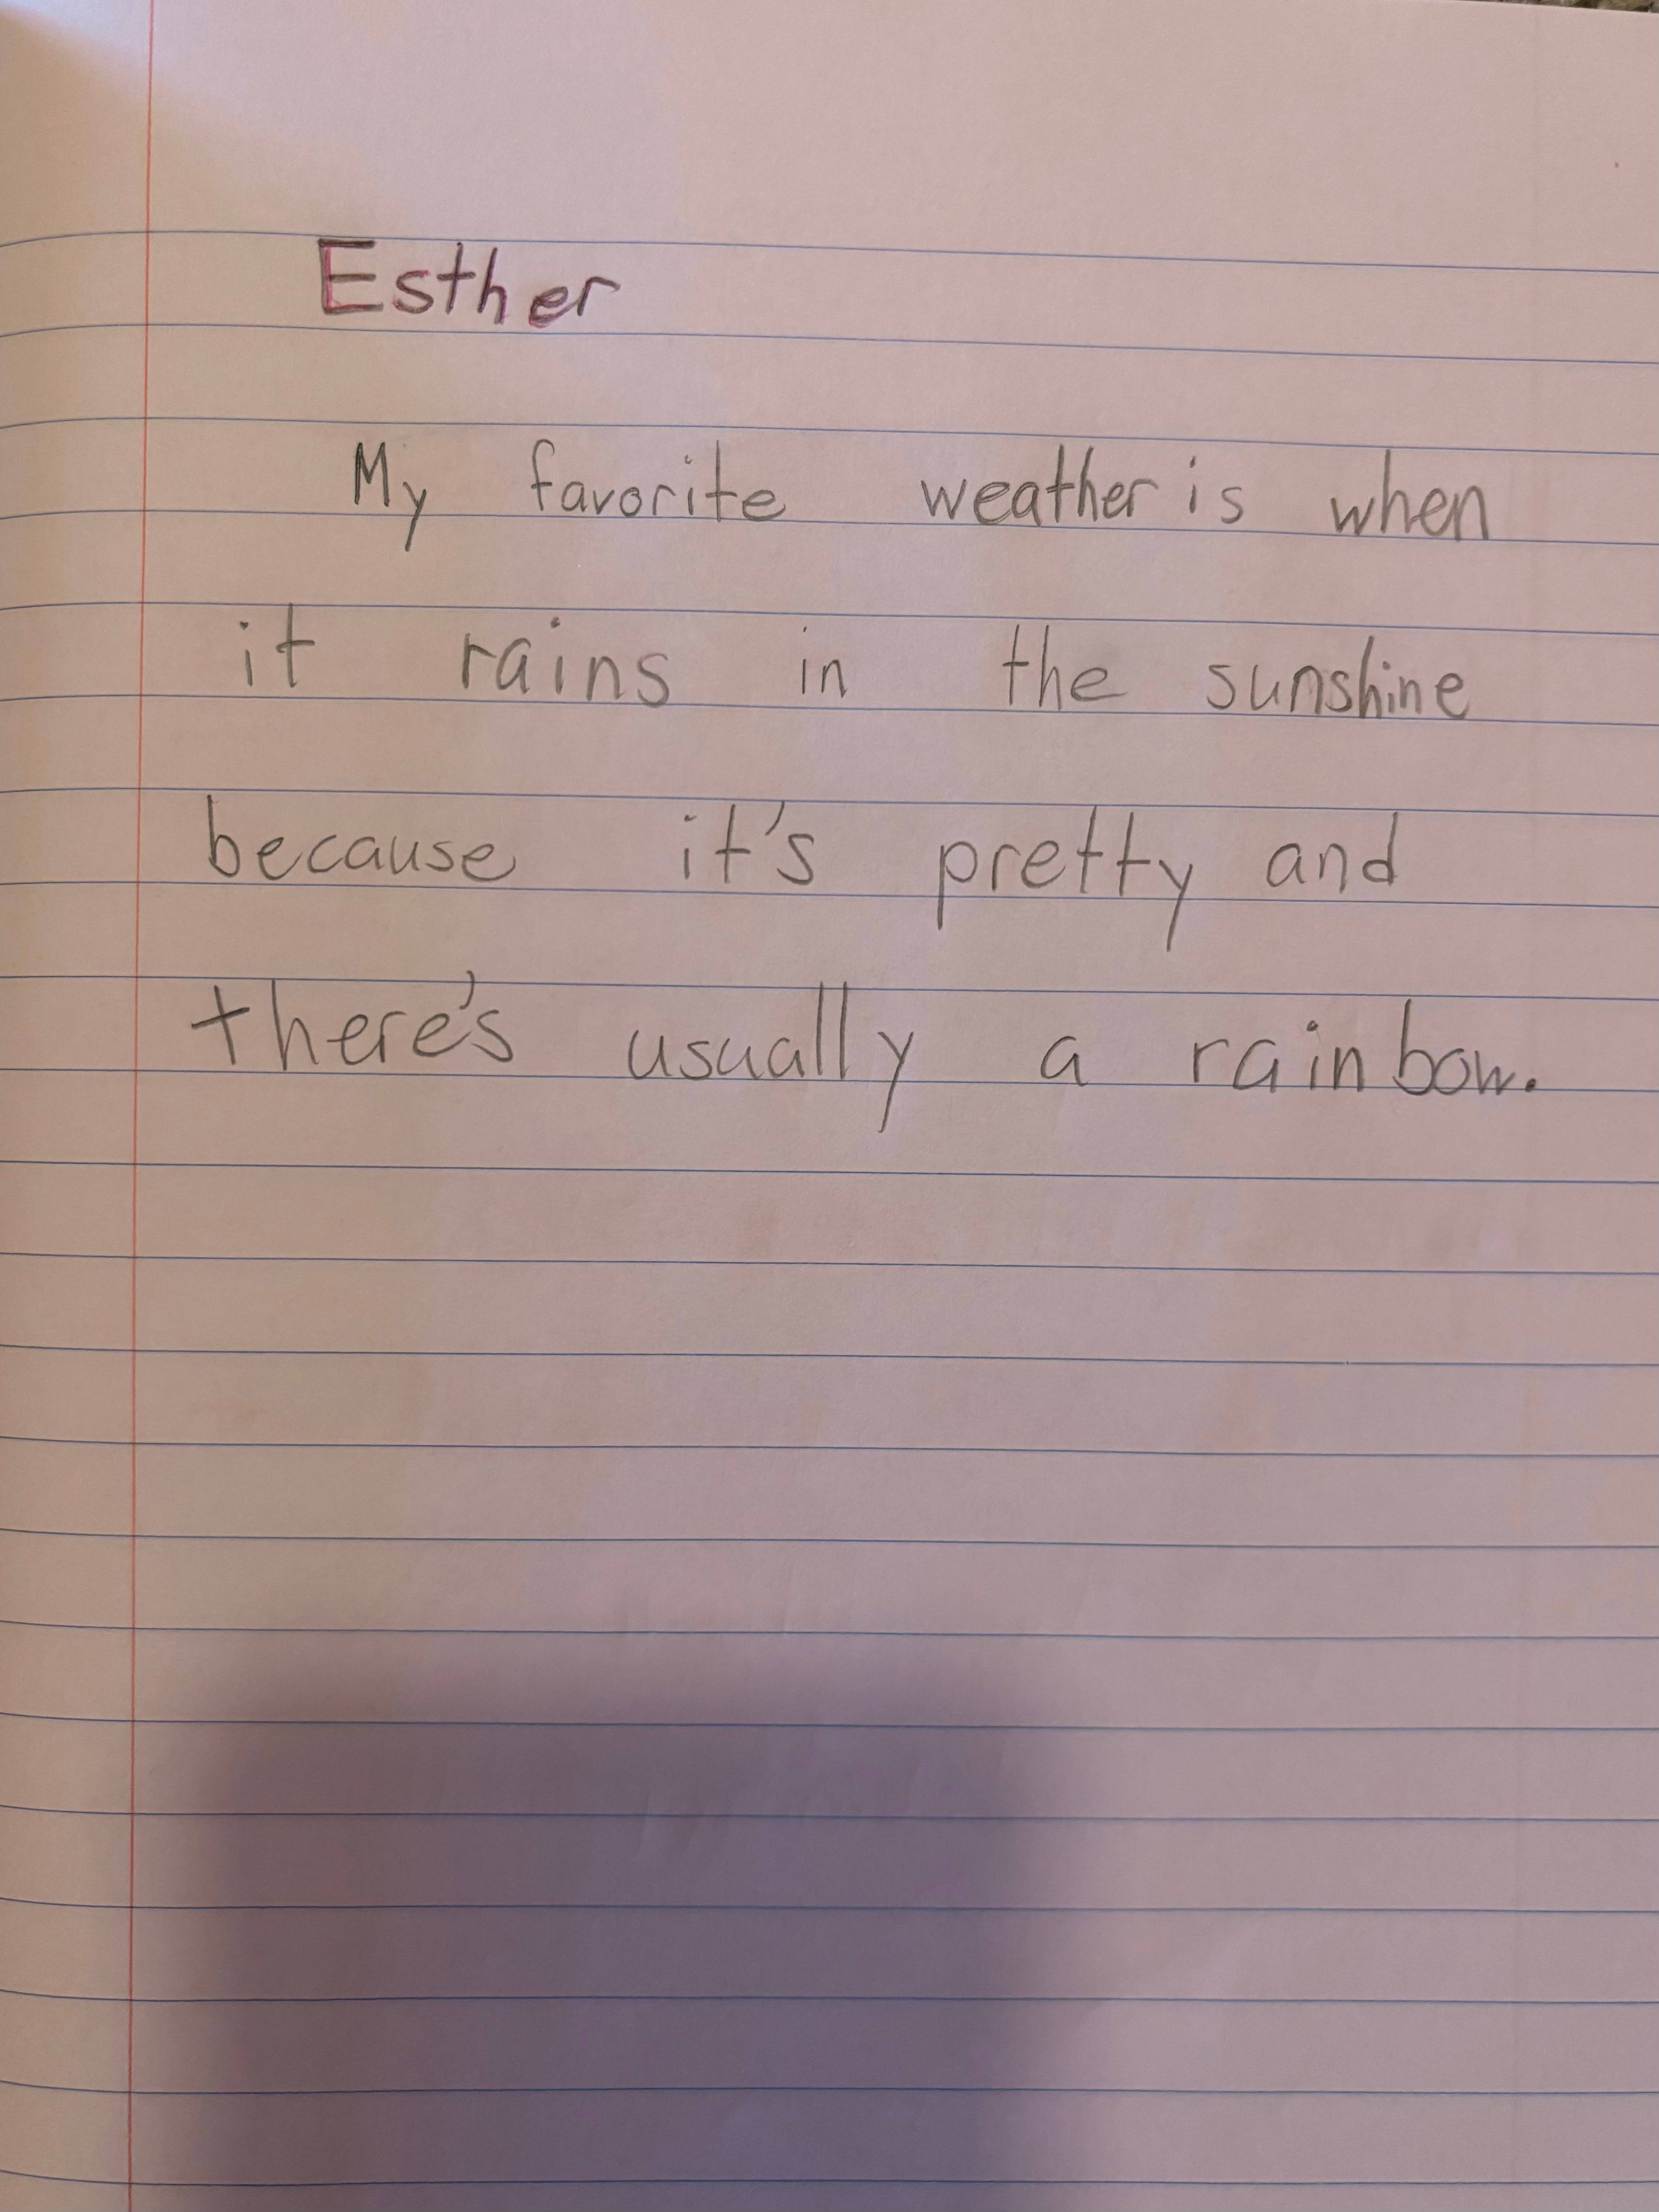 Esther
My favorite weather is when
it rains in the sunshine
because it's pretty and
there's usually a rainbow.